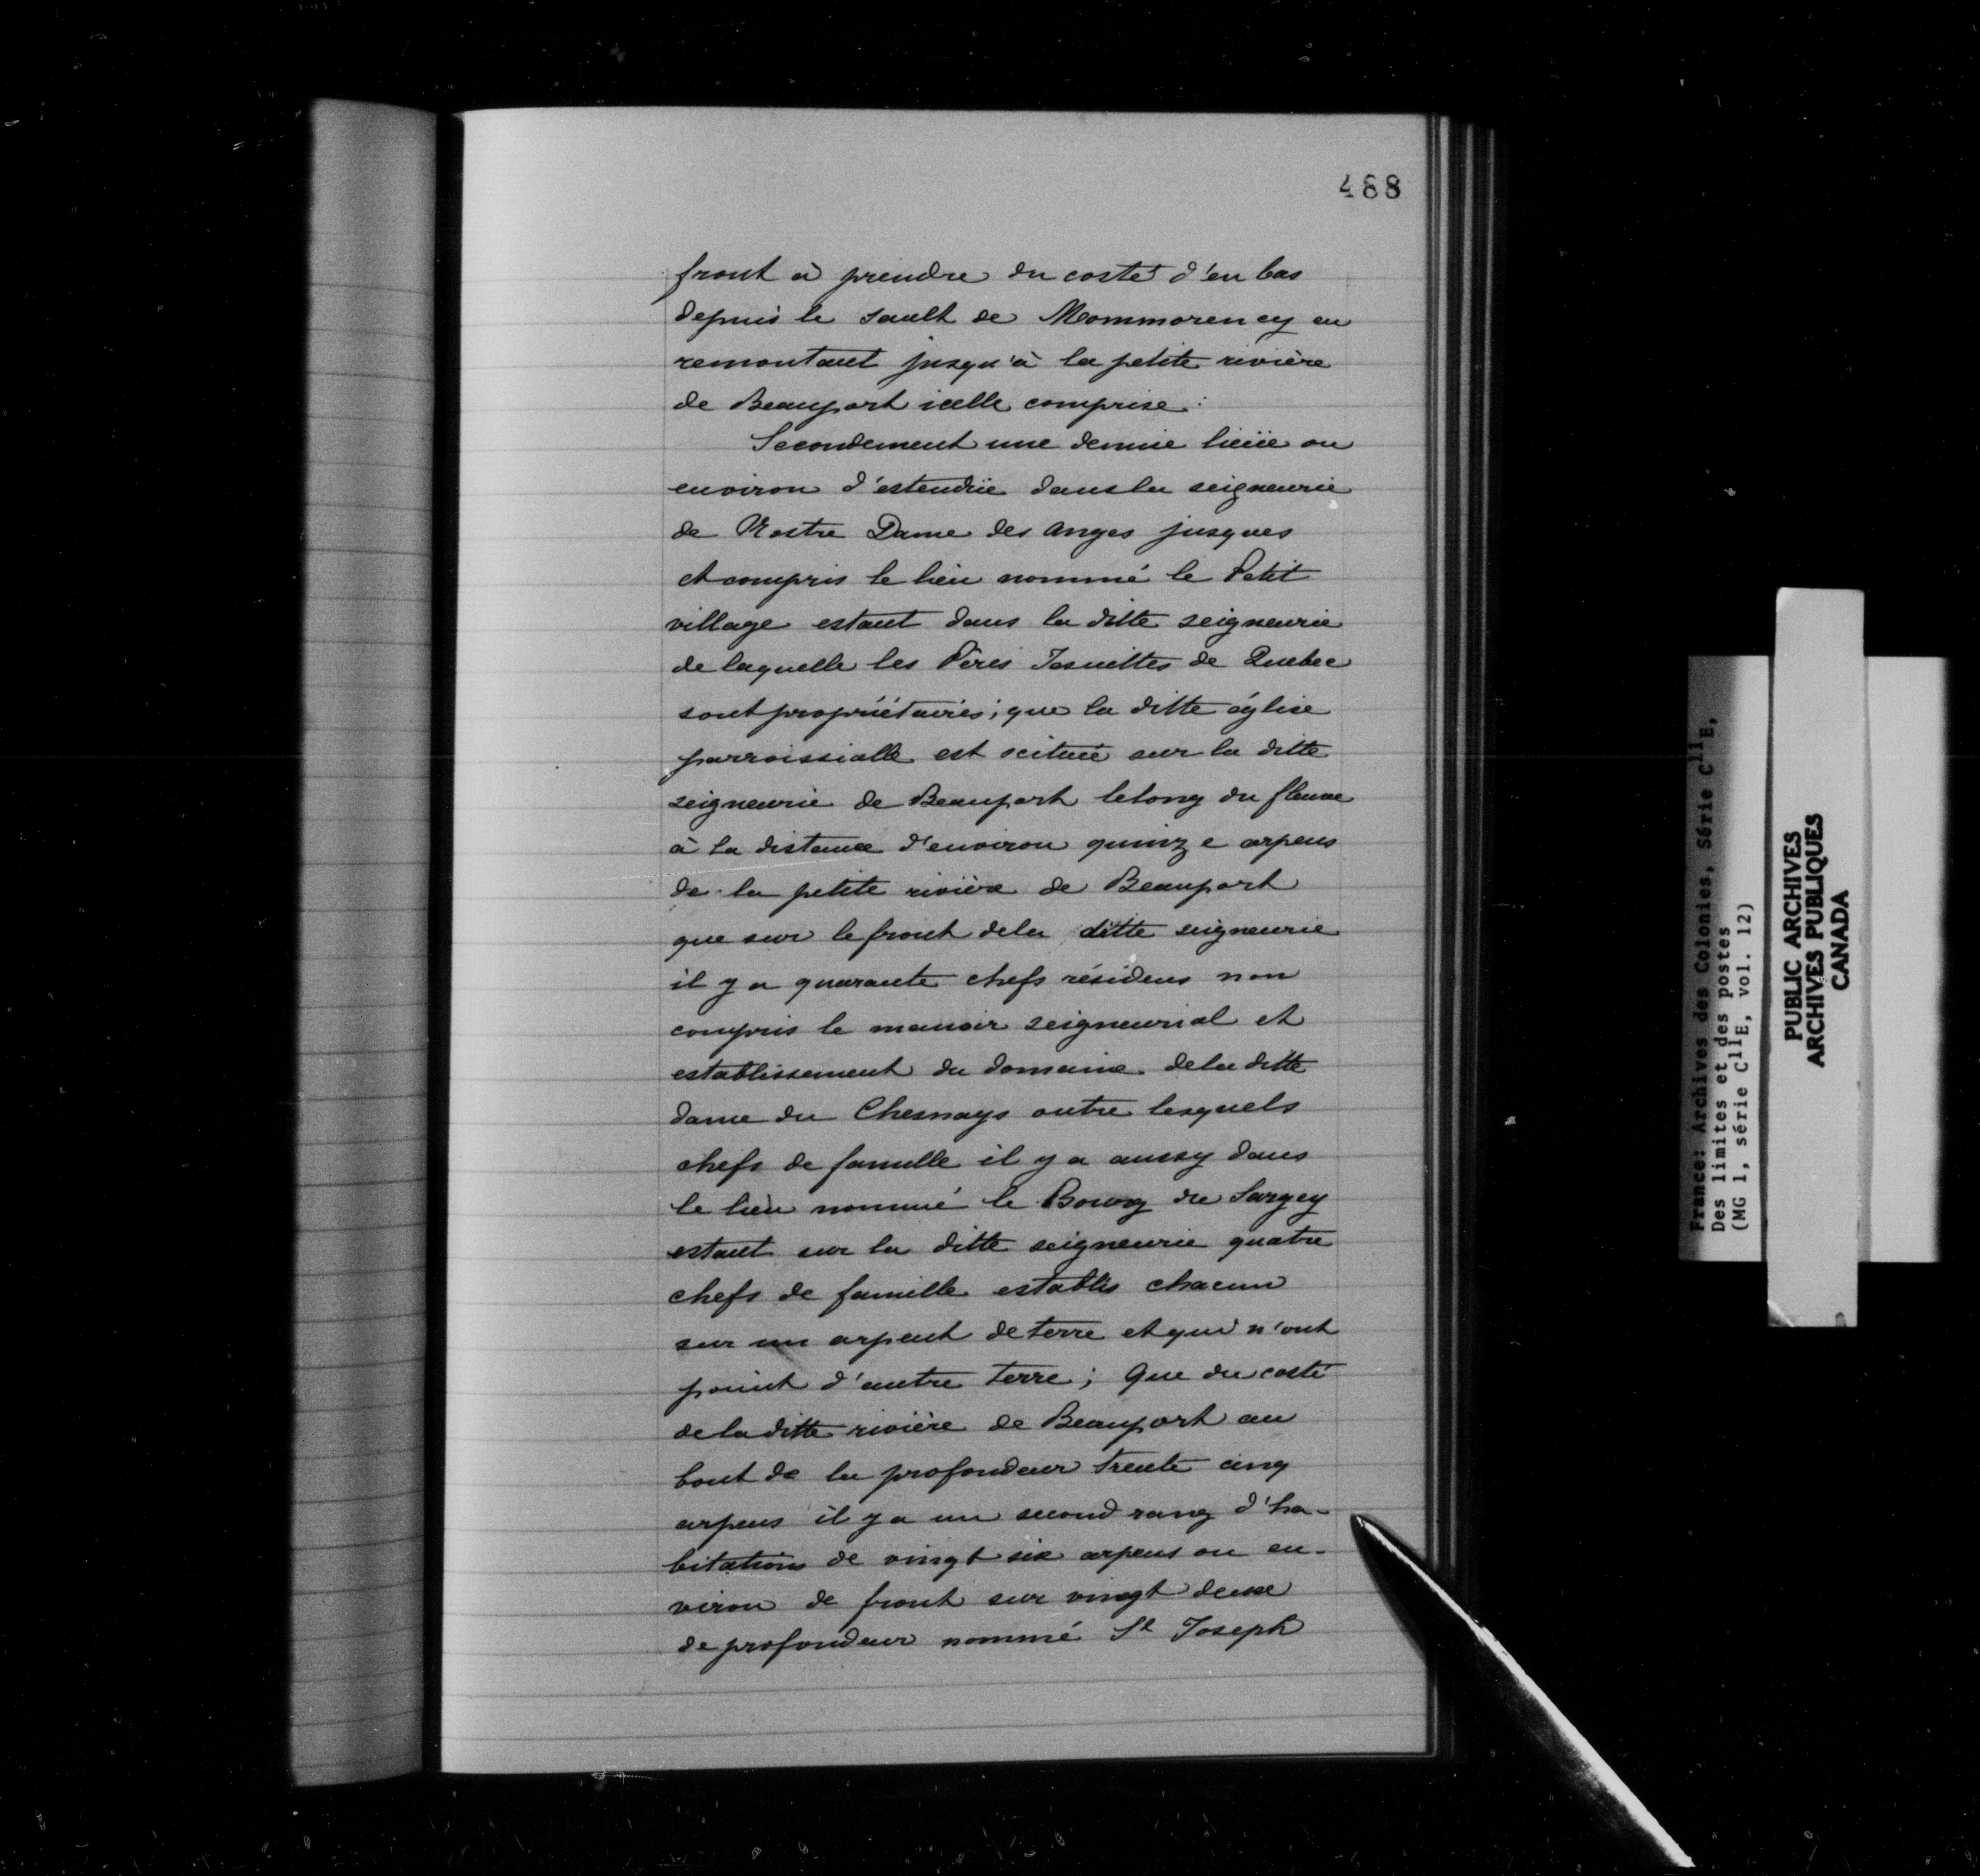 488
front à prendre du costé d'en bas
depuis le sault de Mommorency en
remontant jusqu'à la petite rivière
de Beauport icelle comprise:
Secondement une demie lieüe ou
environ d'estendüe dans la seigneurie
de Nostre Dame des anges jusques
et compris le lieu nommé le Petit
village estant dans la ditte seigneurie
de laquelle les Pères Jesuittes de Quebec
sont propriétaires; que la ditte église
parroissialle est scituée sur la ditte
seigneurie de Beauport le long du fleuve
à la distance d'environ quinze arpens
de la petite rivière de Beauport
que sur le front de la ditte seigneurie
il y a quarante chefs résidens non
compris le manoir seigneurial et
establissement du domaine de la ditte
dame du Chesnays outre lesquels
chefs de famille il y a aussy dans
le lieu nommé le Bourg du Fargey
estant sur la ditte seigneurie quatre
chefs de famille establis chacun
sur un arpent de terre et qui n'ont
point d'autre terre; Que du costé
de la ditte rivière de Beauport au
bout de la profondeur trente cinq
arpens il y a un second rang d'ha-
bitations de vingt six arpens ou en-
viron de front sur vingt deux
de profondeur nommé St Joseph
France: Archives des Colonies, Série C11E,
Des limites et des postes
(MG 1, série C11E, vol. 12)
PUBLIC ARCHIVES
ARCHIVES PUBLIQUES
CANADA